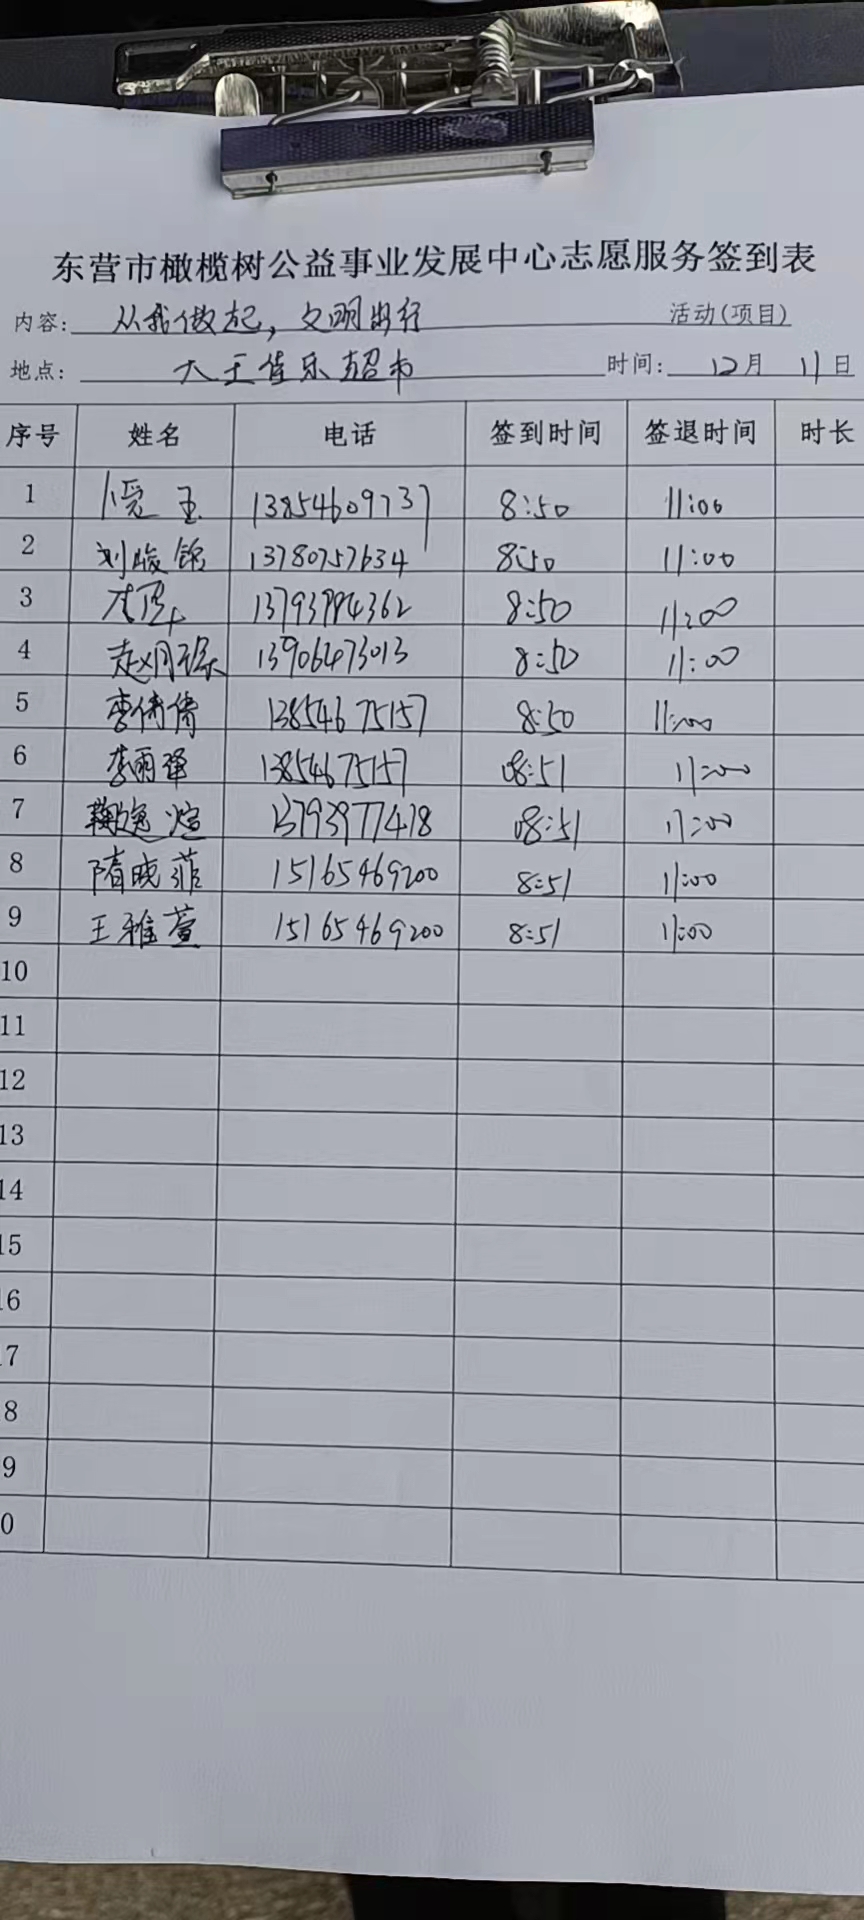 东营市橄榄树公益事业发展中心志愿服务签到表
内容: 从我做起，文明出行 活动(项目)
地点: 大王佳乐超市 时间: 12月 11日
序号 姓名 电话 签到时间 签退时间 时长
1 玉 13854609737 8:50 11:00
2 刘峻铭 13780757634 8:50 11:00
3 13793994362 8:50 11:00
4 赵 13906473013 8:50 11:00
5 李倩倩 13854675157 8:50 11:00
6 李雨泽 13854675157 08:51 11:00
7 鞠逸煊 13793977478 08:51 11:00
8 隋晓菲 15165469200 8:51 11:00
9 王雅萱 15165469200 8:51 11:00
10
11
12
13
14
15
16
17
8
9
0